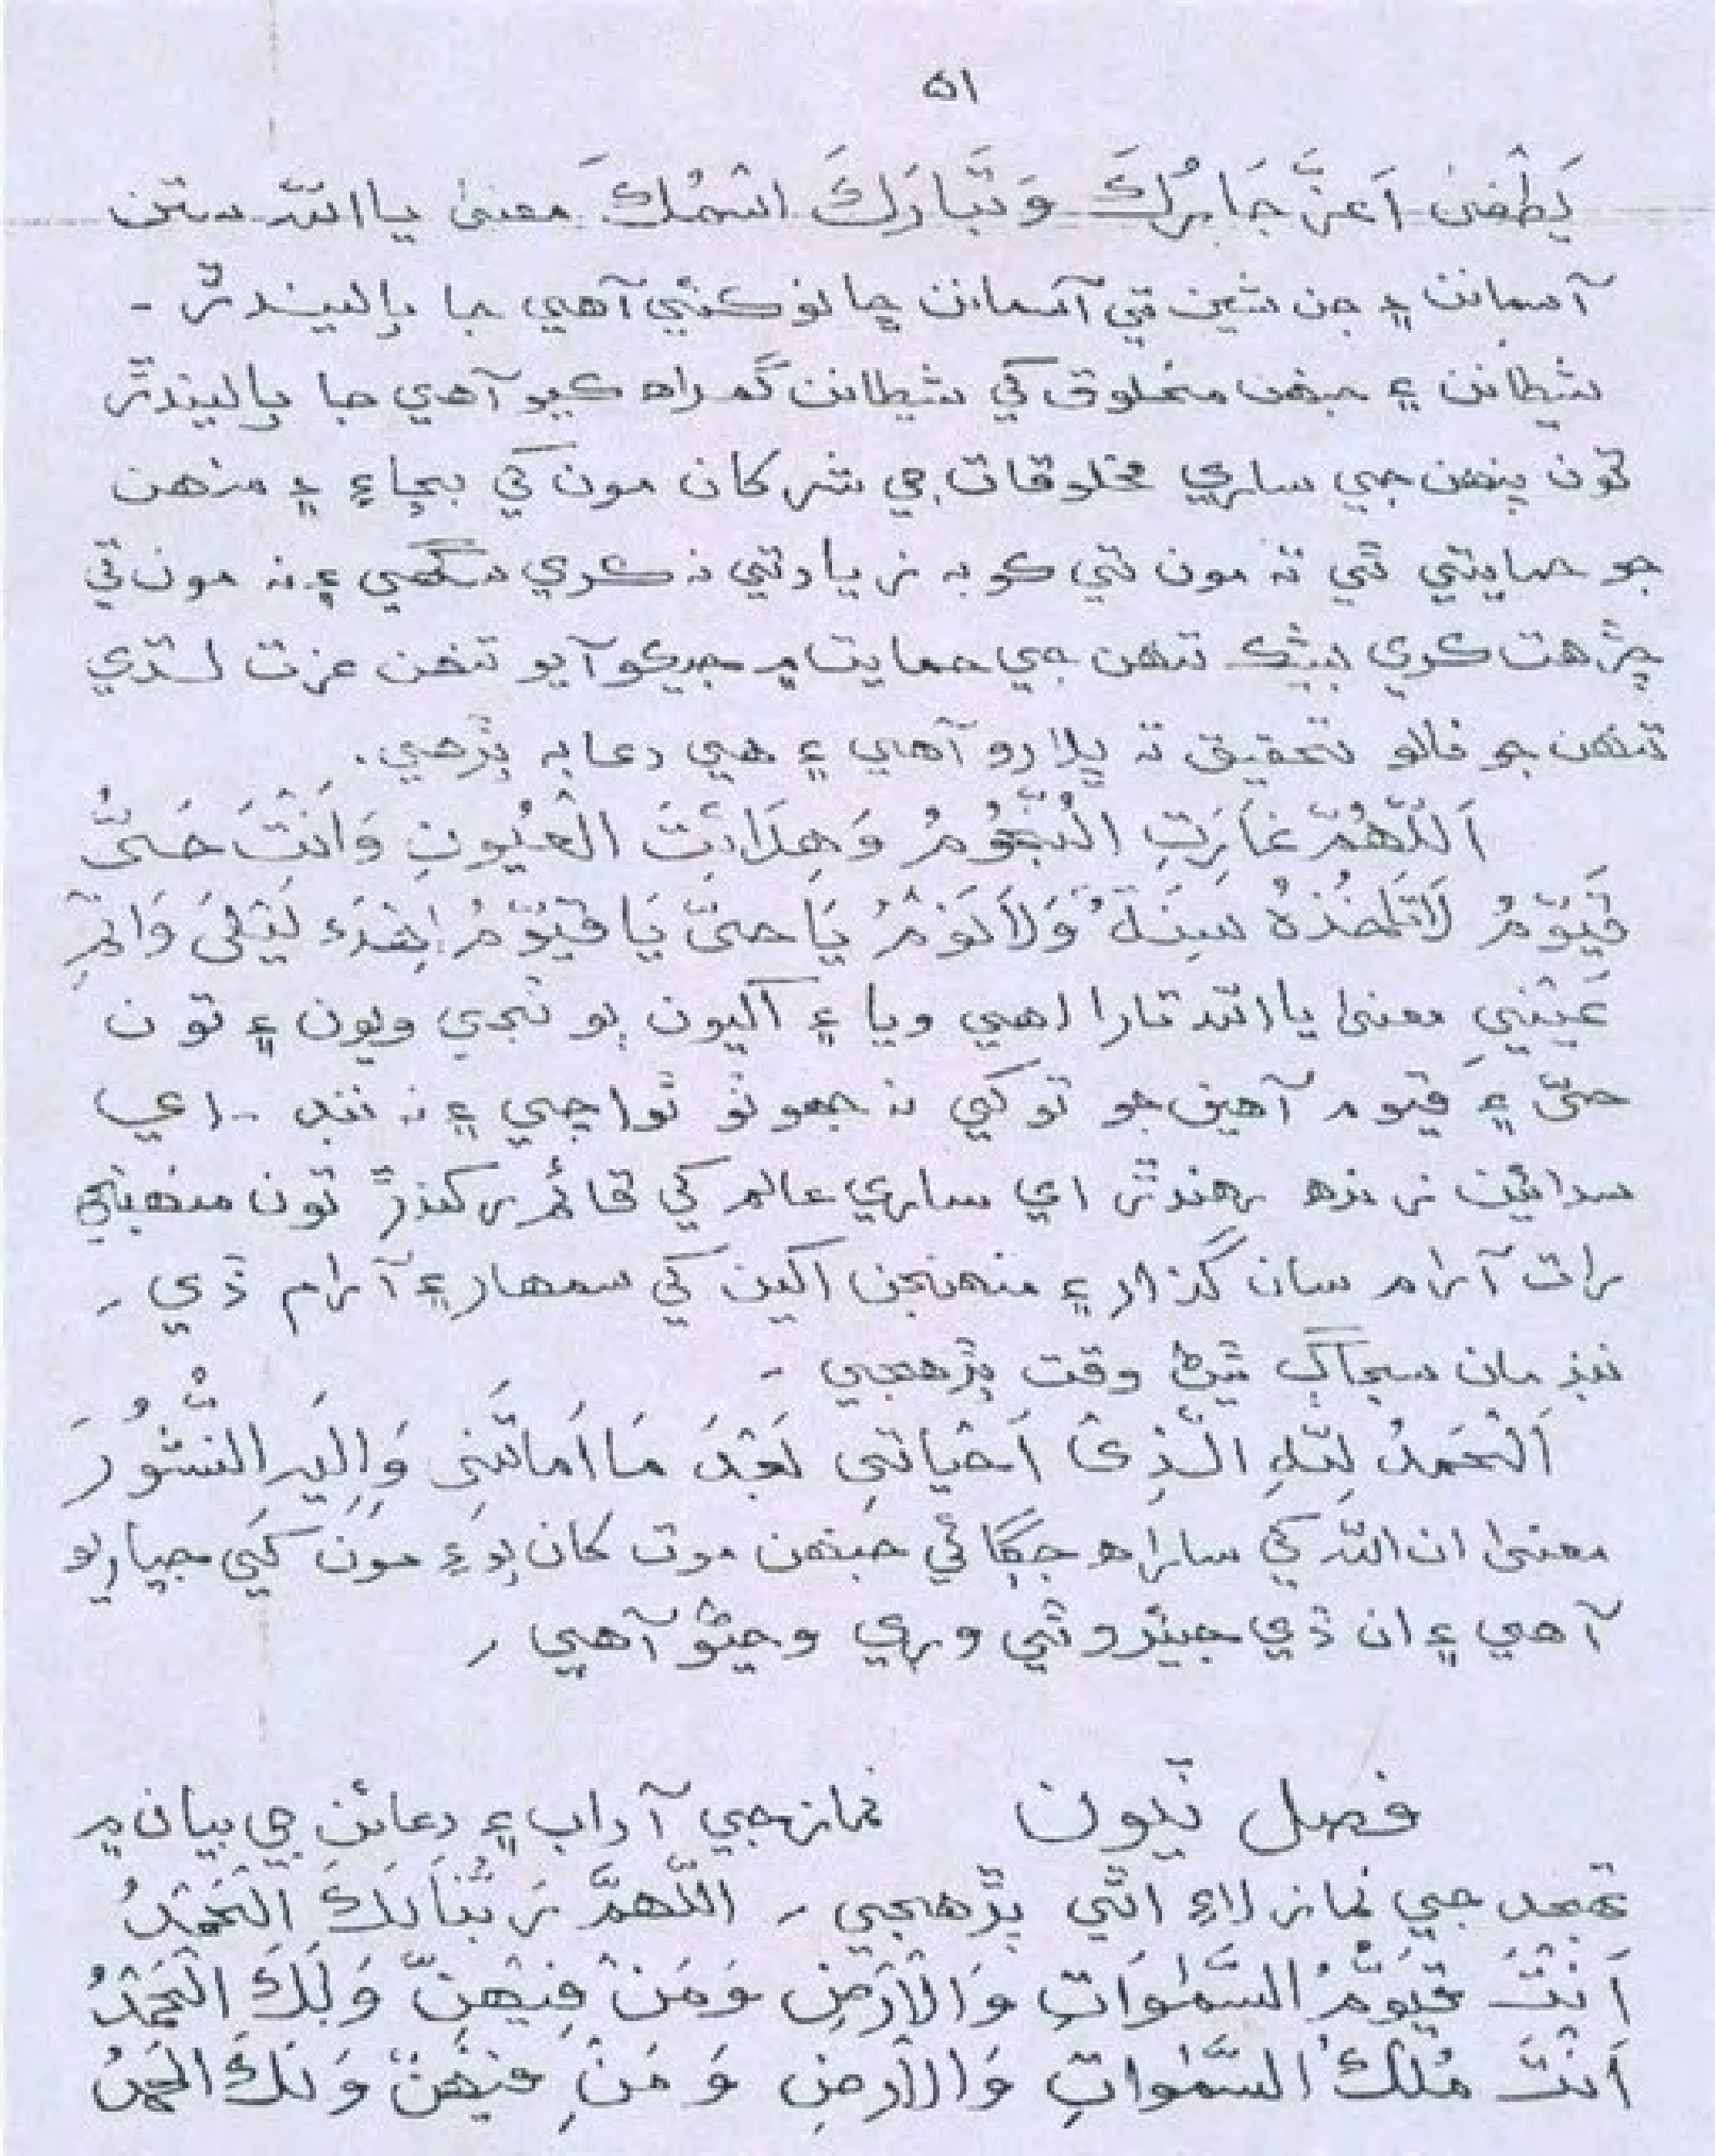 ٥١
يَطْغىٰ اَعَزَّ جَابرُكَ وَتَبَارَكَ اسْمُكَ معنىٰ يا الله ستن
آسمانن ۽ جن شين تي آسمانن ڇانو ڪئي آهي جا پاليندڙ -
شيطانن ۽ جنهن مخلوق کي شيطانن گمراه ڪيو آهي جا پاليندڙ
تون پنهن جي ساري مخلوقات جي شر کان مون کي بچاءِ ۽ منهن
جو حمايتي ٿي ته مون تي ڪو به زيادتي نه ڪري سگهي ۽ نه مون تي
چڙهت ڪري بيشڪ تنهن جي حمايت ۾ جيڪو آيو تنهن عزت لڌي
تنهن جو نالو تحقيق ته ڀلارو آهي ۽ هي دعا به پڙهي.
اَللّٰهُمَّ غَارَتِ النُّجُوْمُ وَهِدَائَتَ الْعُيُونِ وَاَنْتَ حَىُّ
قَيُّوْمُ لَاتَاخُذُهُ سِنَةٌ وَلاَ نَوْمُ يَا حىُّ يَا قَيُّوْمُ اِهْدَء لَيْلىَ وَانِمْ
عَيْنِي معنىٰ يا الله تارا لهي ويا ۽ اکيون ٻوٽجي ويون ۽ تون
حىّ ۽ قيوم آهين جو توکي نه جهوٽو ٿو اچي ۽ نه ننڊ - اي
سدائين زنده رهندڙ اي ساري عالم کي قائم رکندڙ تون منهنجي
رات آرام سان گذار ۽ منهنجن اکين کي سمهار ۽ آرام ڏي ۔
ننڊ مان سجاڳ ٿيڻ وقت پڙهجي -
اَلْحَمدُ لِلّٰهِ الَّذِىْ اَحْيَانِي بَعْدَ مَا اَمَاتَنِى وَاِلَيہِ النُّشُوْرَ
معنىٰ ان الله کي ساراه جڳائي جنهن موت کان پوءِ مون کي جياريو
آهي ۽ ان ڏي جيئرو ٿي وري وڃڻو آهي ۔
فصل ٽيون نماز جي آداب ۽ دعائن جي بيان ۾
تهجد جي نماز لاءِ اٿي پڙهجي ۔ اللّٰهمَّ رَبَّنَا لَكَ الْحَمْدُ
اَنْتَ قَيُّوْمُ السَّمٰوَاتِ وَالْاَرْضِ وَمَنْ فِيْهِنَّ وَلَكَ الْحَمْدُ
اَنْتَ مُلْكُ السَّمٰواتِ وَالاَرضِ وَ مَنْ فيْهِنَّ وَلَكَ الحَمدُ